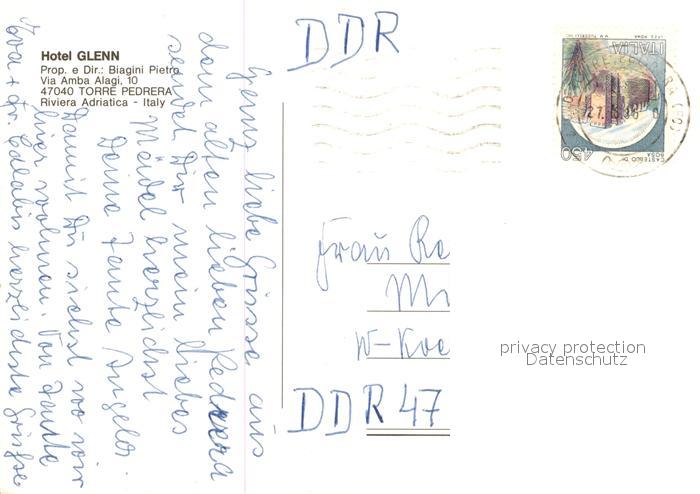 Hotel GLENN
Prop. e Dir.: Biagini Pietro
Via Amba Alagi, 10
47040 TORRE PEDRERA
Riviera Adriatica - Italy
Ganz liebe Grüsse aus
dem alten lieben Pedrera
sendet Dir mein liebes
Mädel herzlichst
Deine Tante Angela.
Damit Du siehst wo wir
hier wohnen. Von Tante
Eva + Dr herzlichste Grüsse
DDR
ITALIA
450
CASTELLO DI
Frau Re
Mi
W-Koe
DDR 47
privacy protection
Datenschutz